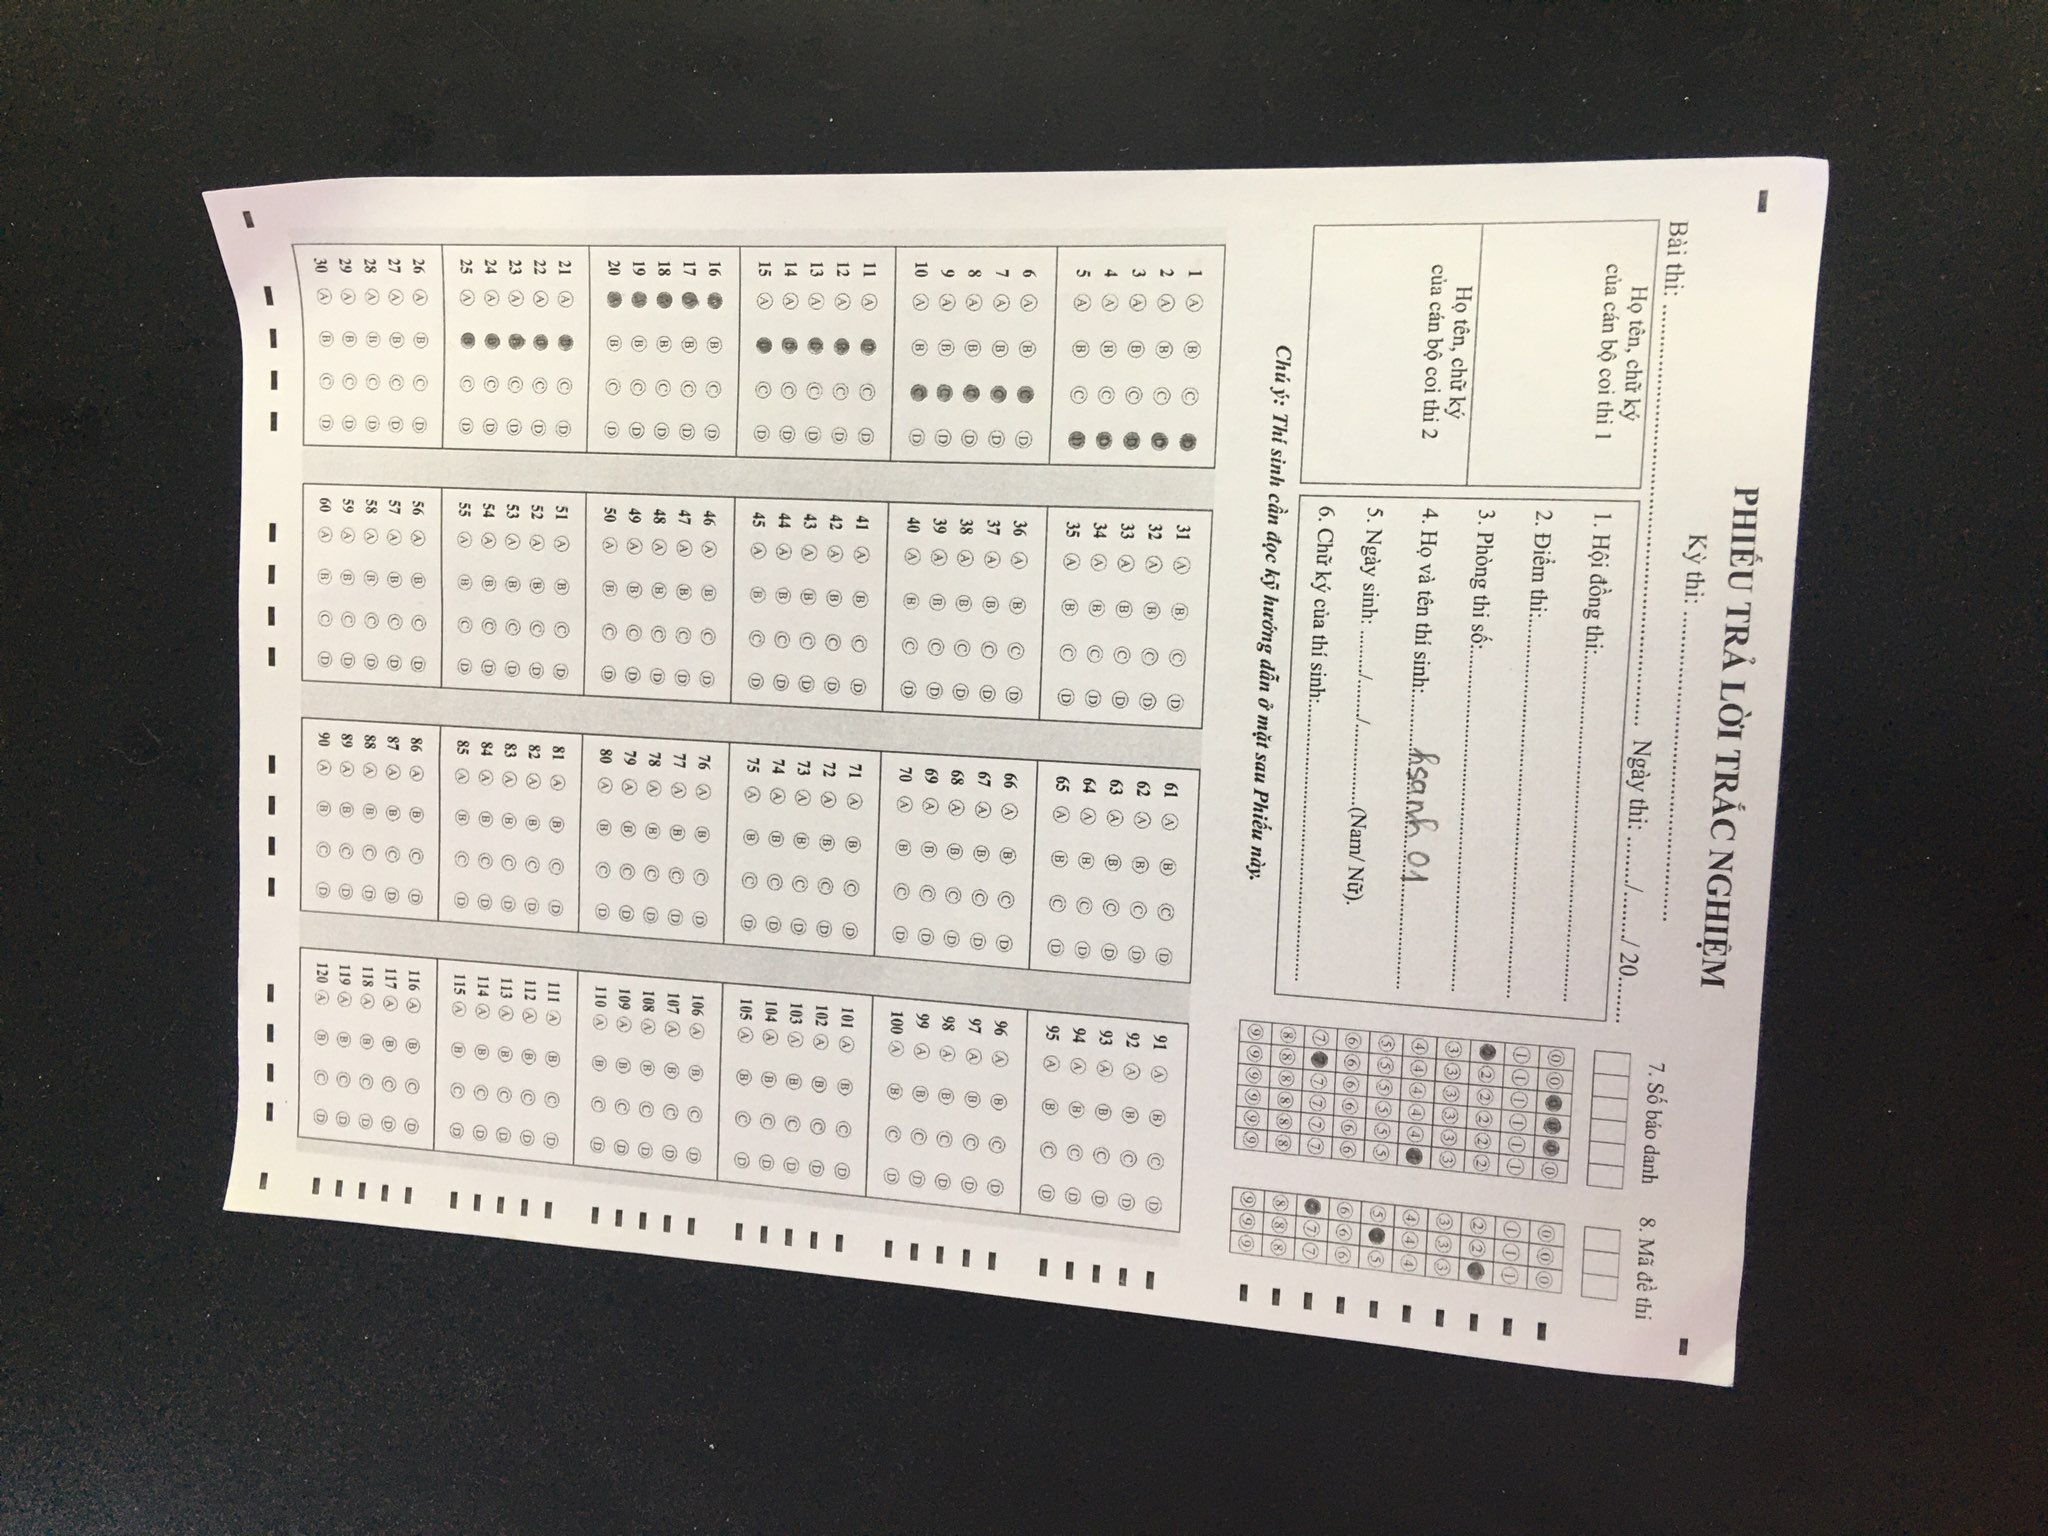 PHIẾU TRẢ LỜI TRẮC NGHIỆM
Kỳ thi: ........................................
Bài thi: ........................................ Ngày thi: ......../......../ 20........
Họ tên, chữ ký
của cán bộ coi thi 1
Họ tên, chữ ký
của cán bộ coi thi 2
1. Hội đồng thi:........................................
2. Điểm thi:........................................
3. Phòng thi số:........................................
4. Họ và tên thí sinh:..........hsanh 01..........
5. Ngày sinh: ......../......../................(Nam/ Nữ).
6. Chữ ký của thí sinh:........................................
7. Số báo danh
8. Mã đề thi
0 0 0 0 0 0
1 1 1 1 1 1
2 2 2 2 2
3 3 3 3 3 3
4 4 4 4 4
5 5 5 5 5 5
6 6 6 6 6 6
7 7 7 7 7
8 8 8 8 8 8
9 9 9 9 9 9
0 0 0
1 1 1
2 2
3 3 3
4 4 4
5 5
6 6 6
7 7
8 8 8
9 9 9
Chú ý: Thí sinh cần đọc kỹ hướng dẫn ở mặt sau Phiếu này.
1 A B C D
2 A B C D
3 A B C D
4 A B C D
5 A B C D
6 A B C D
7 A B C D
8 A B C D
9 A B C D
10 A B C D
11 A B C D
12 A B C D
13 A B C D
14 A B C D
15 A B C D
16 A B C D
17 A B C D
18 A B C D
19 A B C D
20 A B C D
21 A B C D
22 A B C D
23 A B C D
24 A B C D
25 A B C D
26 A B C D
27 A B C D
28 A B C D
29 A B C D
30 A B C D
31 A B C D
32 A B C D
33 A B C D
34 A B C D
35 A B C D
36 A B C D
37 A B C D
38 A B C D
39 A B C D
40 A B C D
41 A B C D
42 A B C D
43 A B C D
44 A B C D
45 A B C D
46 A B C D
47 A B C D
48 A B C D
49 A B C D
50 A B C D
51 A B C D
52 A B C D
53 A B C D
54 A B C D
55 A B C D
56 A B C D
57 A B C D
58 A B C D
59 A B C D
60 A B C D
61 A B C D
62 A B C D
63 A B C D
64 A B C D
65 A B C D
66 A B C D
67 A B C D
68 A B C D
69 A B C D
70 A B C D
71 A B C D
72 A B C D
73 A B C D
74 A B C D
75 A B C D
76 A B C D
77 A B C D
78 A B C D
79 A B C D
80 A B C D
81 A B C D
82 A B C D
83 A B C D
84 A B C D
85 A B C D
86 A B C D
87 A B C D
88 A B C D
89 A B C D
90 A B C D
91 A B C D
92 A B C D
93 A B C D
94 A B C D
95 A B C D
96 A B C D
97 A B C D
98 A B C D
99 A B C D
100 A B C D
101 A B C D
102 A B C D
103 A B C D
104 A B C D
105 A B C D
106 A B C D
107 A B C D
108 A B C D
109 A B C D
110 A B C D
111 A B C D
112 A B C D
113 A B C D
114 A B C D
115 A B C D
116 A B C D
117 A B C D
118 A B C D
119 A B C D
120 A B C D